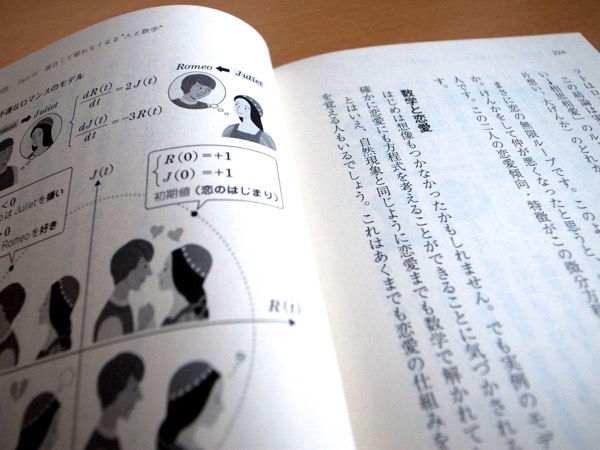 Part IV 面白くて眠れなくなる"人と数学"
不運なロマンスのモデル
Romeo ← Juliet
Juliet
dR(t)/dt = 2J(t)
dJ(t)/dt = −3R(t)
J(t)
R(0) = +1
J(0) = +1
初期値〈恋のはじまり〉
< 0
はJulietを嫌い
> 0
Romeoを好き
R(t)
224
この結論は実
相思相愛
片思い、大げんか）のどれか
まさに恋の無限ループです。このよ
か、けんかをして仲が悪くなったと思うと、
人です。この二人の恋愛傾向、特徴がこの微分方程
数学と恋愛
はじめは想像もつかなかったかもしれません。でも実例のモデ
確かに恋愛にも方程式を考えることができることに気づかされる
とはいえ、自然現象と同じように恋愛までも数学で解かれてい
を覚える人もいるでしょう。これはあくまでも恋愛の仕組みを